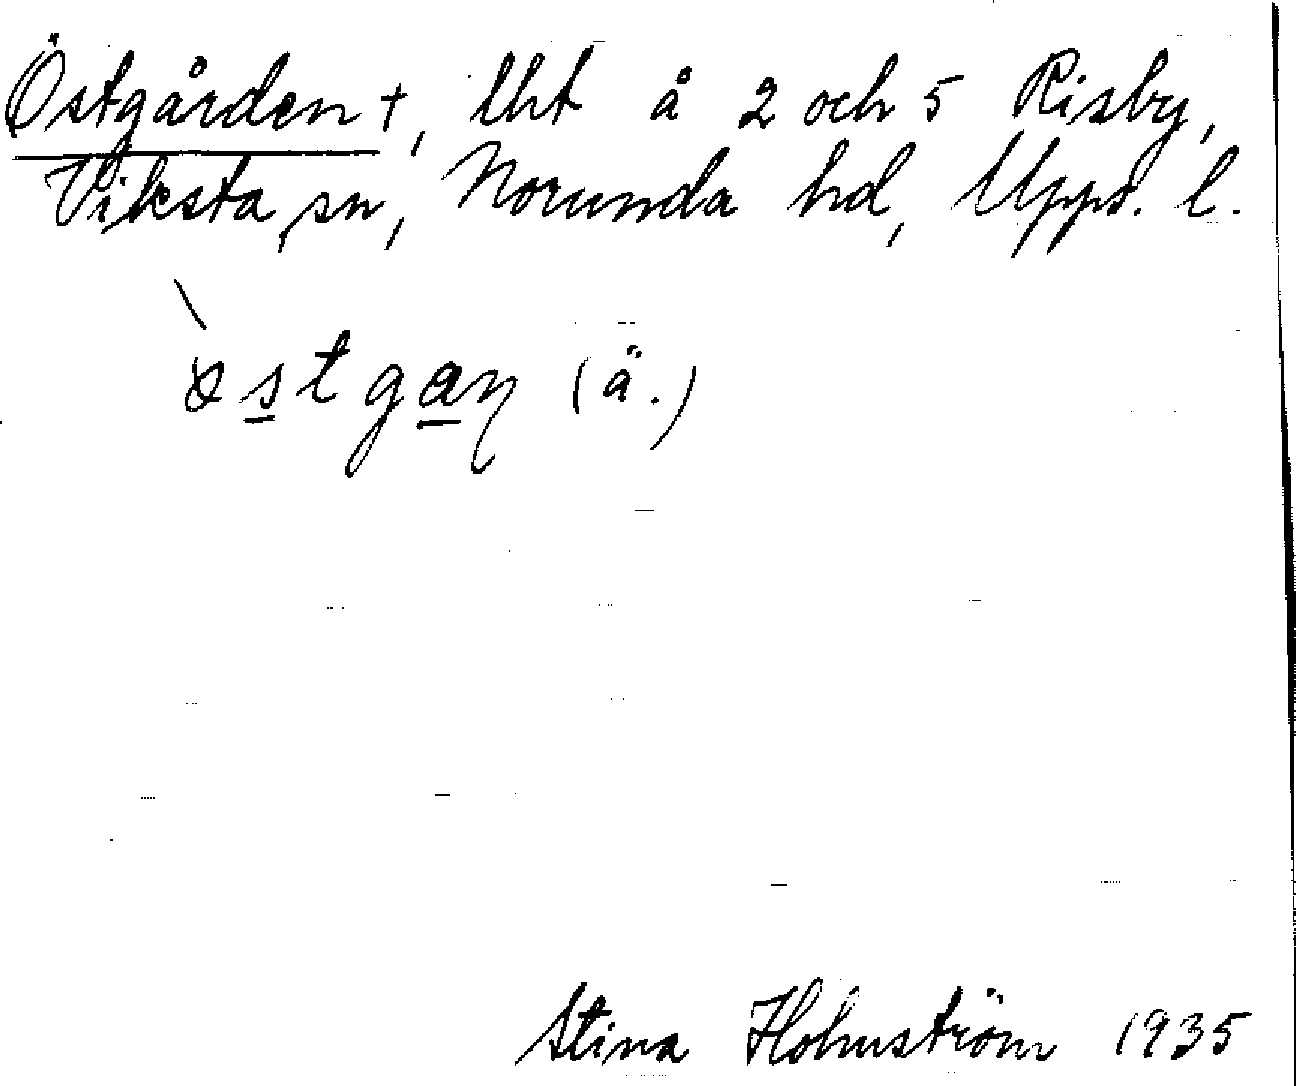 Östgården +, lht å 2 och 5 Risby,
Viksta sn, Norunda hd, Upps. l.
(ä.)
Stina Holmström 1935